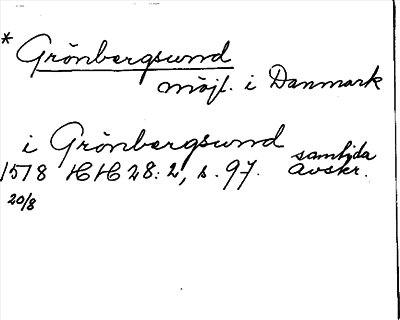 * Grönbergsund
möjl. i Danmark
i Grönbergsund
1518 HH 28:2, s. 97. samtida avskr.
20/8